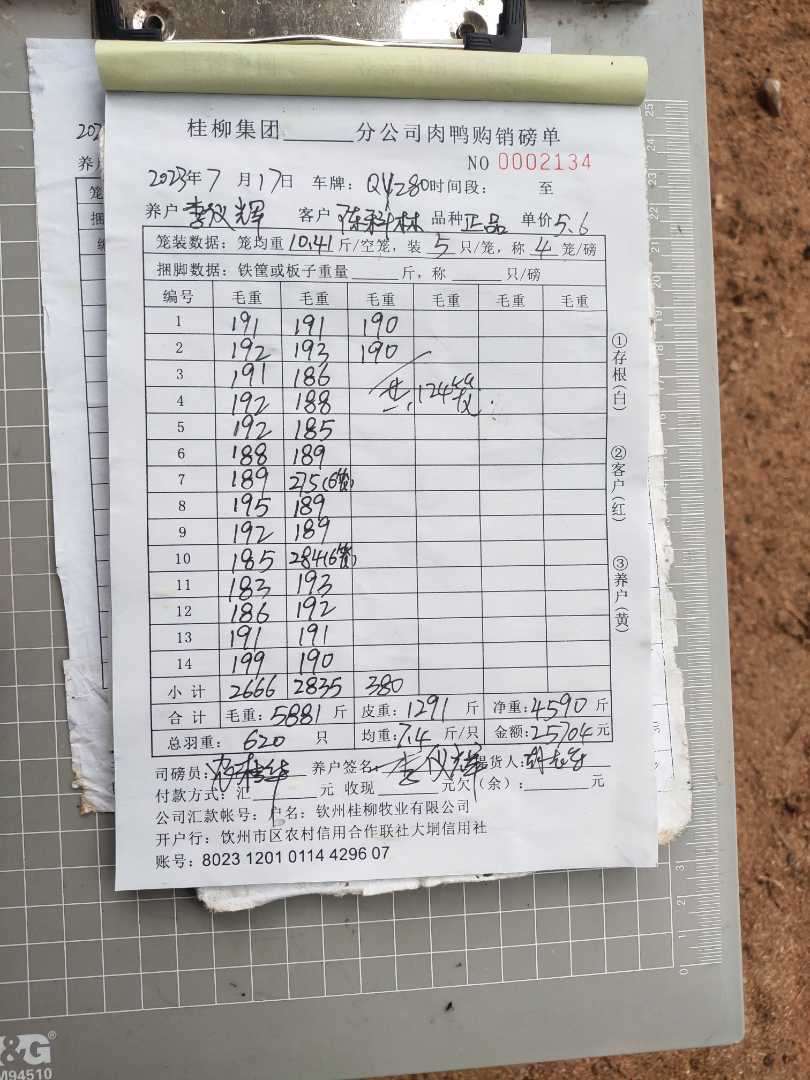 桂柳集团______分公司肉鸭购销磅单
NO 0002134
2023年7月17日 车牌：QY280时间段： 至
养户 李仪辉 客户 陈科林 品种 正品 单价5.6
笼装数据：笼均重 10.41 斤/空笼，装 5 只/笼，称 4 笼/磅
捆脚数据：铁筐或板子重量______斤，称______只/磅
编号 毛重 毛重 毛重 毛重 毛重 毛重
1 191 191 190
2 192 193 190
3 191 186
4 192 188 共124笼
5 192 185
6 188 189
7 189 275(6笼)
8 195 189
9 192 189
10 185 284(6笼)
11 183 193
12 186 192
13 191 191
14 199 190
小计 2666 2835 380
合计 毛重：5881斤 皮重：1291斤 净重：4590斤
总羽重：620只 均重：7.4斤/只 金额：25704元
司磅员： 养户签名：李仪辉 提货人：
付款方式：汇______元 收现______元欠（余）：______元
公司汇款帐号：户名：钦州桂柳牧业有限公司
开户行：钦州市区农村信用合作联社大垌信用社
账号：8023 1201 0114 4296 07
①存根(白)
②客户(红)
③养户(黄)
202
养户
笼
捆
&G®
M94510
25
24
23
22
21
20
19
18
3
2
1
0